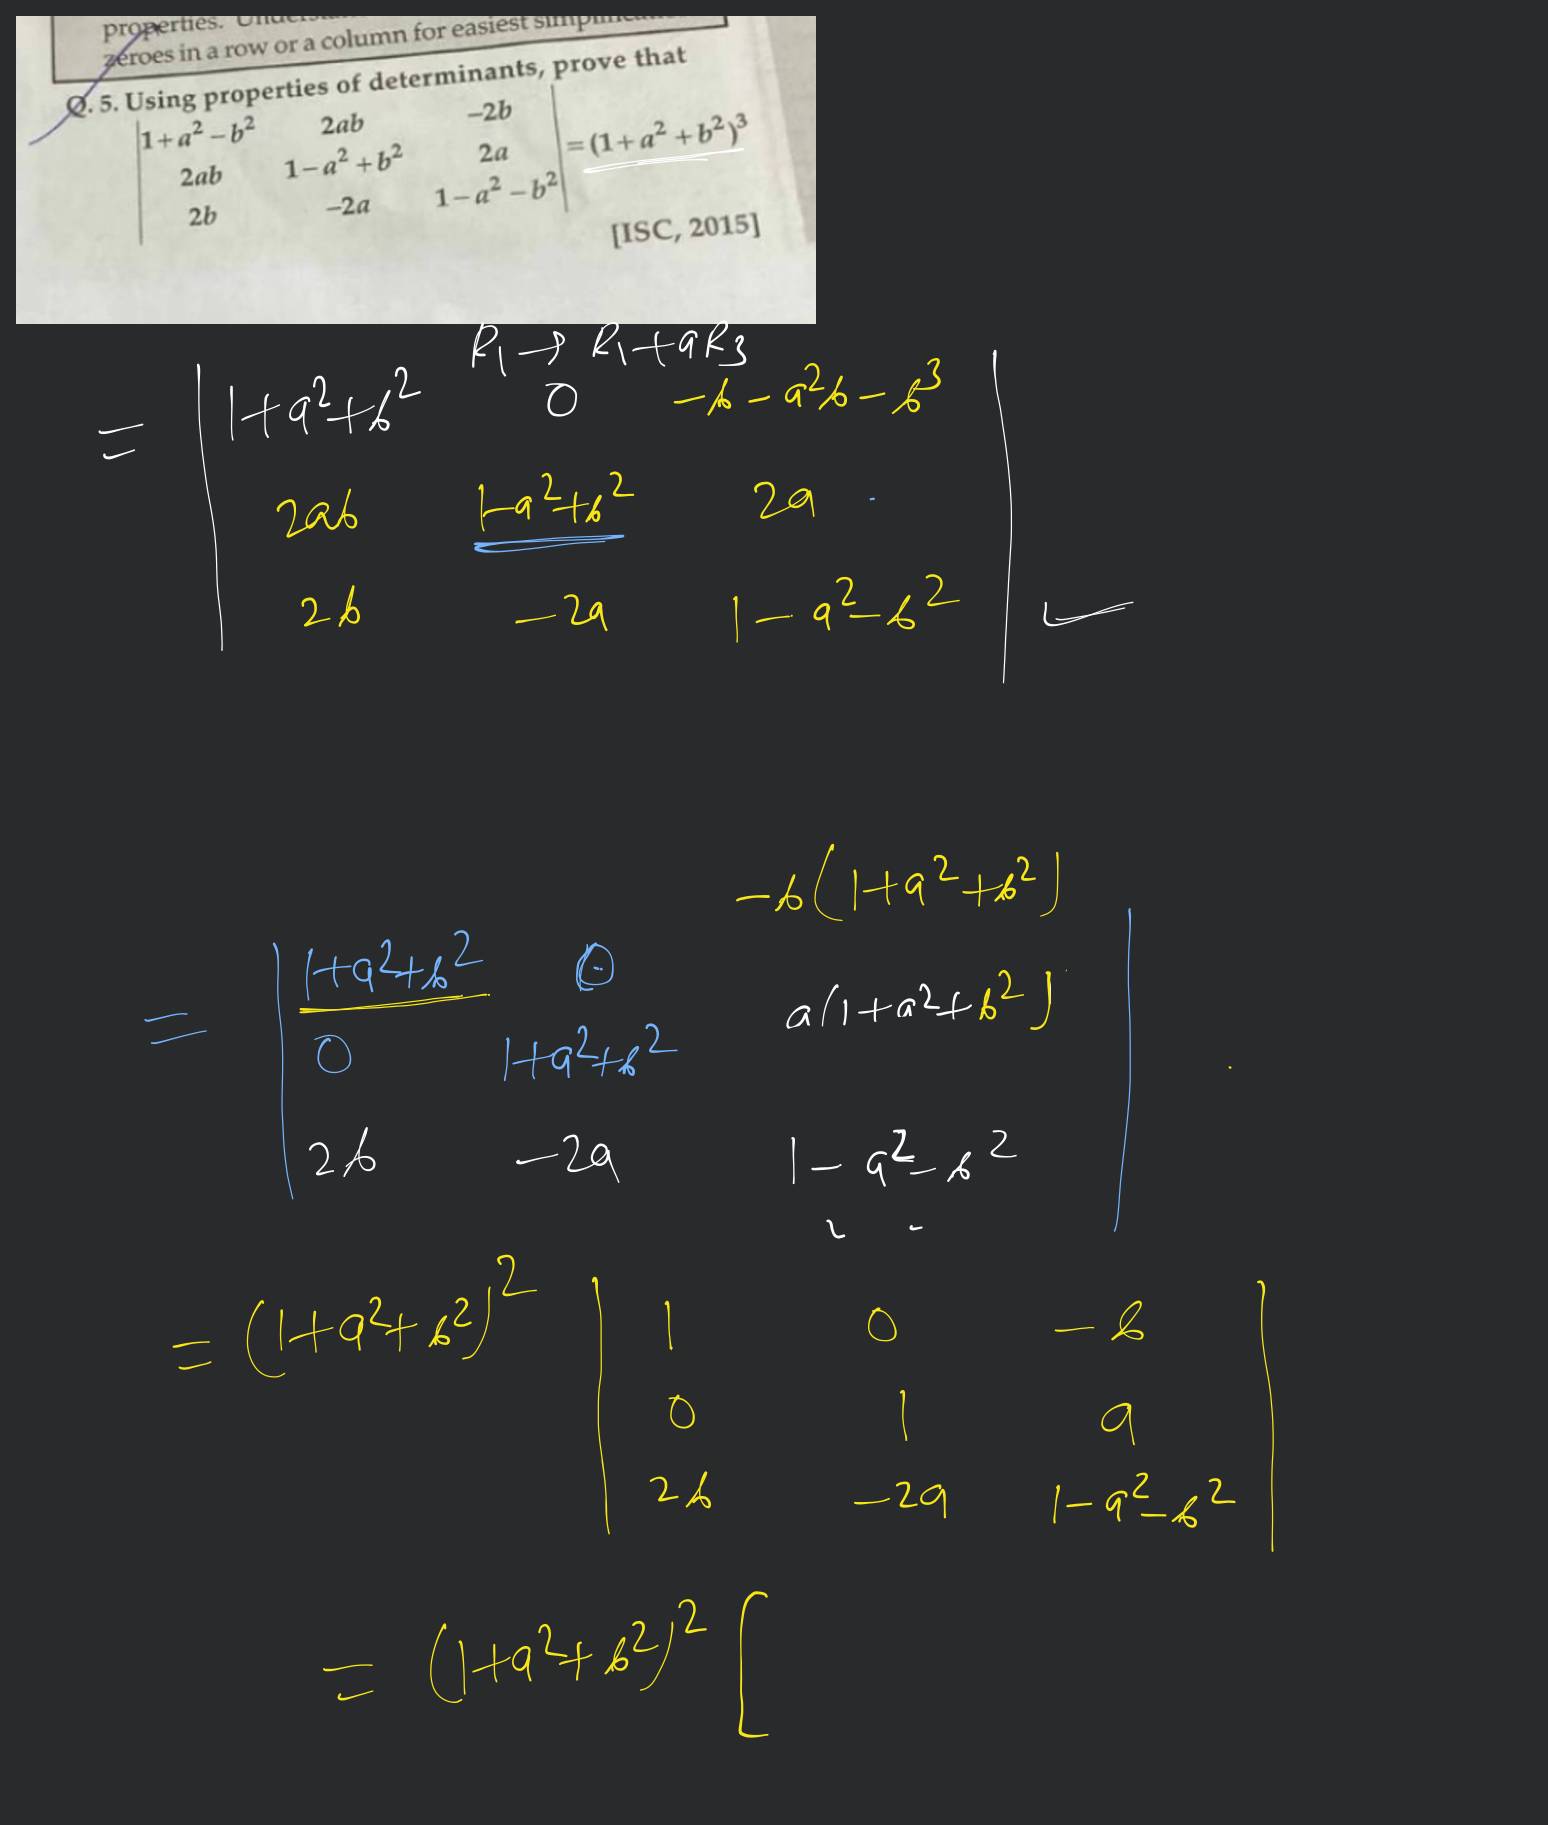 properties.
zeroes in a row or a column for easiest
Q. 5. Using properties of determinants, prove that
|1+a² −b² 2ab −2b|
|2ab 1−a² +b² 2a| =(1+a² +b²)³
|2b −2a 1−a² −b²|
[ISC, 2015]
R₁ → R₁+aR₃
= |1+a²+b² 0 −b−a²b−b³|
|2ab 1−a²+b² 2a|
|2b −2a 1−a²−b²|
−b(1+a²+b²)
= |1+a²+b² 0
0 1+a²+b² a(1+a²+b²)|
|2b −2a 1−a²−b²|
= (1+a²+b²)² |1 0 −b|
|0 1 a|
|2b −2a 1−a²−b²|
= (1+a²+b²)² [